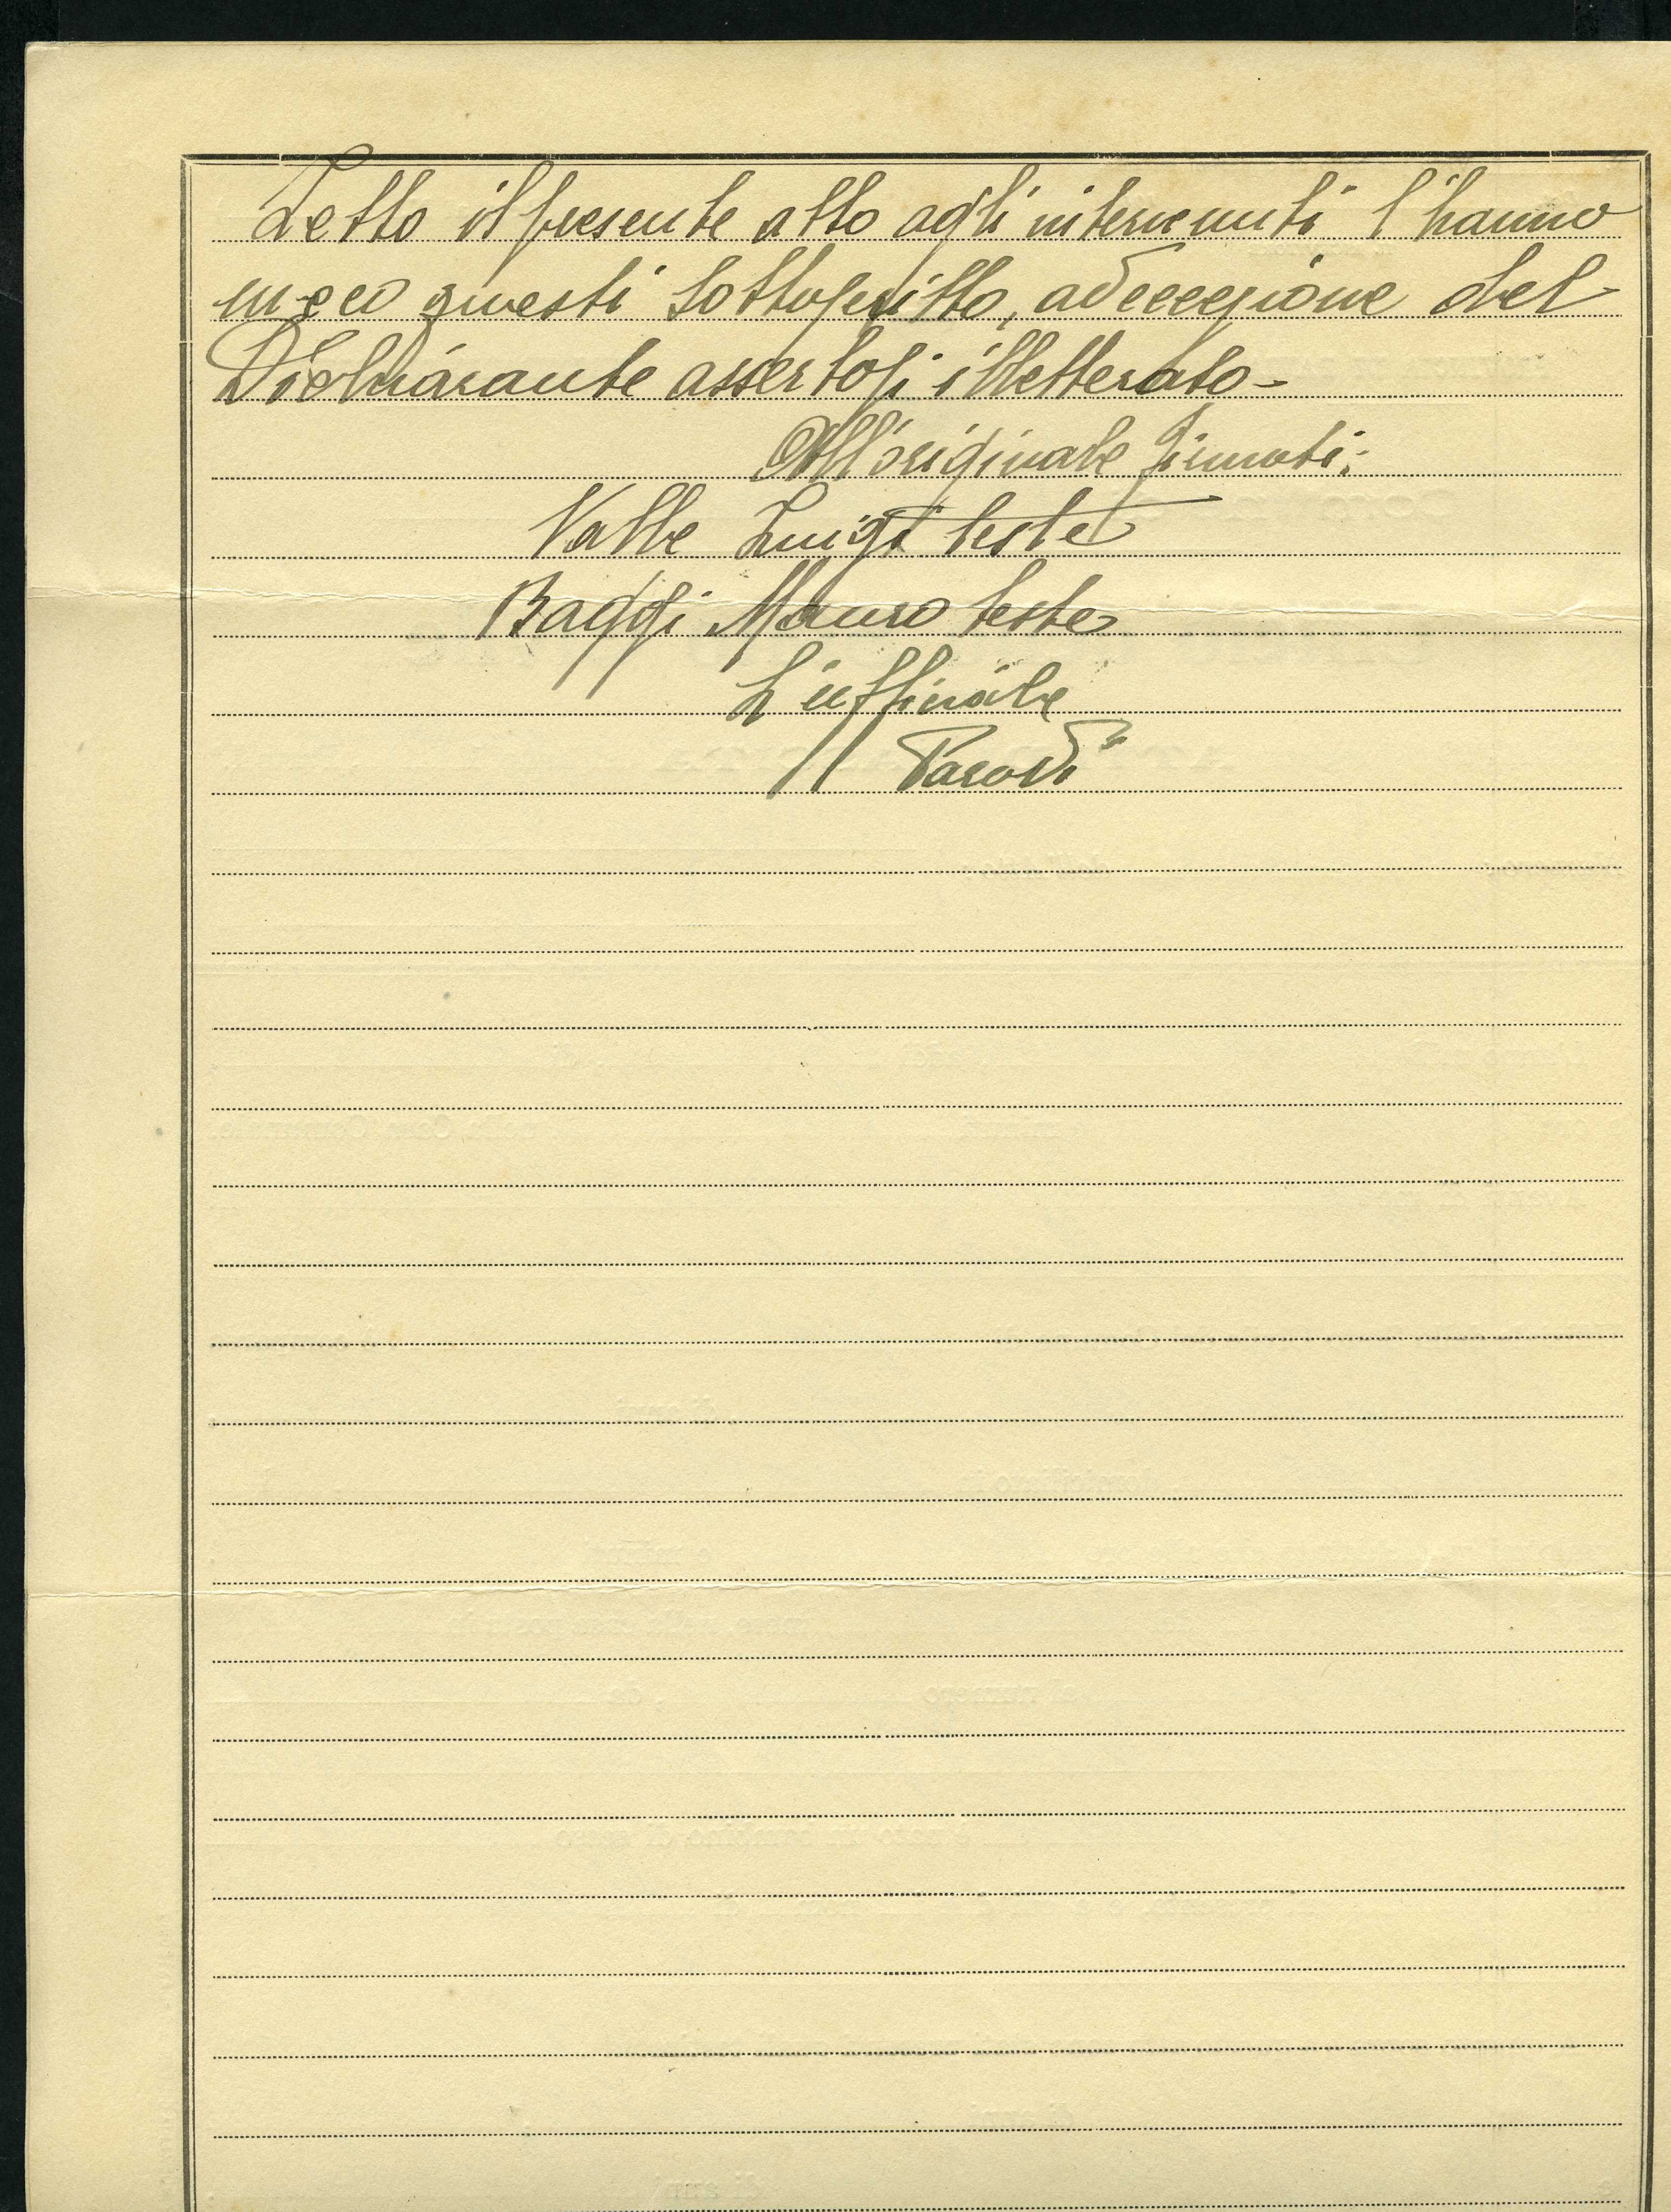 Letto il presente atto agli intervenuti l'hanno
meco questi sottoscritto, ad eccezione del
Dichiarante assertosi illetterato -
All'originale firmati:
Valle Luigi teste
Baggi Mauro teste
L'ufficiale
Parodi